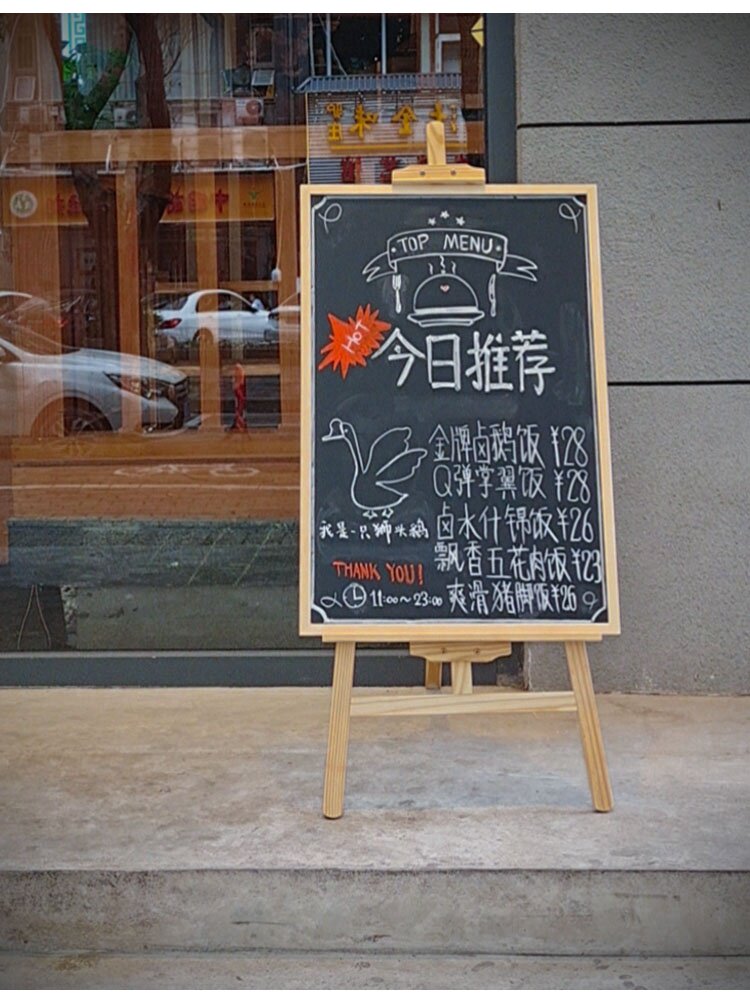 TOP MENU
HOT
今日推荐
金牌卤鹅饭 ¥28
Q弹掌翼饭 ¥28
卤水什锦饭 ¥26
飘香五花肉饭 ¥23
爽滑猪脚饭 ¥26
我是一只狮头鹅
THANK YOU!
11:00~23:00